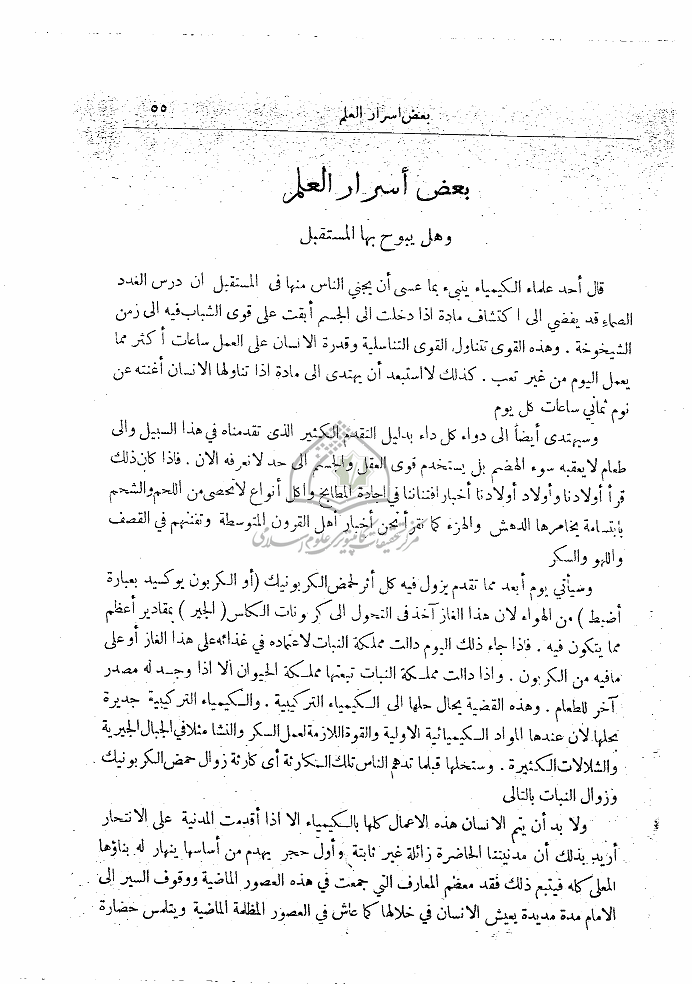 بعض اسرار العلم ٥٥
بعض أسرار العلم
وهل يبوح بها المستقبل
قال أحد علماء الكيمياء ينبىء بما عسى أن يجني الناس منها فى المستقبل ان درس الغدد
الصماء قد يفضي الى اكتشاف مادة اذا دخلت الى الجسم أبقت على قوى الشباب فيه الى زمن
الشيخوخة . وهذه القوى تتناول القوى التناسلية وقدرة الانسان على العمل ساعات أكثر مما
يعمل اليوم من غير تعب . كذلك لا استبعد أن يهتدى الى مادة اذا تناولها الانسان أغنته عن
نوم ثماني ساعات كل يوم
وسيهتدى أيضاً الى دواء كل داء بدليل التقدم الكثير الذى تقدمناه في هذا السبيل والى
طعام لا يعقبه سوء الهضم بل يستخدم قوى العقل والجسم الى حد لا نعرفه الان . فاذا كان ذلك
قرأ أولادنا وأولاد أولادنا أخبار افتناننا في اجادة المطابخ وأكل أنواع لا تحصى من اللحم والشحم
بابتسامة يخامرها الدهش والهزء كما نقرأ نحن أخبار أهل القرون المتوسطة وتفننهم في القصف
واللهو والسكر
وسيأتي يوم أبعد مما تقدم يزول فيه كل أثر لحمض الكربونيك (أو الكربون يوكسيد بعبارة
أضبط ) من الهواء لان هذا الغاز آخذ فى التحول الى كربونات الكلس ( الجير ) بمقادير أعظم
مما يتكون فيه . فاذا جاء ذلك اليوم دالت مملكة النبات لاعتماده في غذائه على هذا الغاز أو على
مافيه من الكربون . واذا دالت مملكة النبات تبعتها مملكة الحيوان الا اذا وجد له مصدر
آخر للطعام . وهذه القضية يحال حلها الى الكيمياء التركيبية . والكيمياء التركيبية جديرة
بحلها لان عندها المواد الكيميائية الاولية والقوة اللازمة لعمل السكر والنشا مثلا في الجبال الجيرية
والشلالات الكثيرة . وستحلها قبلما تدهم الناس تلك الكارثة أى كارثة زوال حمض الكربونيك
وزوال النبات بالتالى
ولا بد أن يتم الانسان هذه الاعمال كلها بالكيمياء الا اذا أقدمت المدنية على الانتحار
أريد بذلك أن مدنيتنا الحاضرة زائلة غير ثابتة وأول حجر يهدم من أساسها ينهار له بناؤها
المعلى كله فيتبع ذلك فقد معظم المعارف التي جمعت في هذه العصور الماضية ووقوف السير الى
الامام مدة مديدة يعيش الانسان في خلالها كما عاش في العصور المظلمة الماضية ويتلمس حضارة
مركز تحقیقات کامپیوتری علوم اسلامی